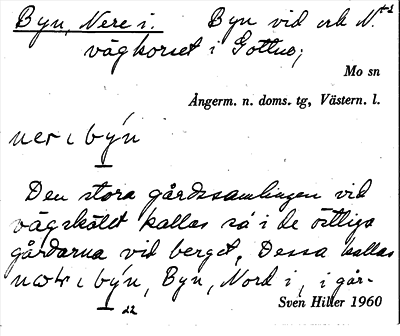 Byn, Nere i. Byn vid ek N.
vägkorset i Gottne;
Mo sn
Ångerm. n. doms. tg, Västern. l.
ner ı by'n
Den stora gårdssamlingen vid
vägskälet kallas så i de östliga
gårdarna vid berget. Dessa kallas
ı by'n, Byn, Nord i, i går-
Sven Hiller 1960